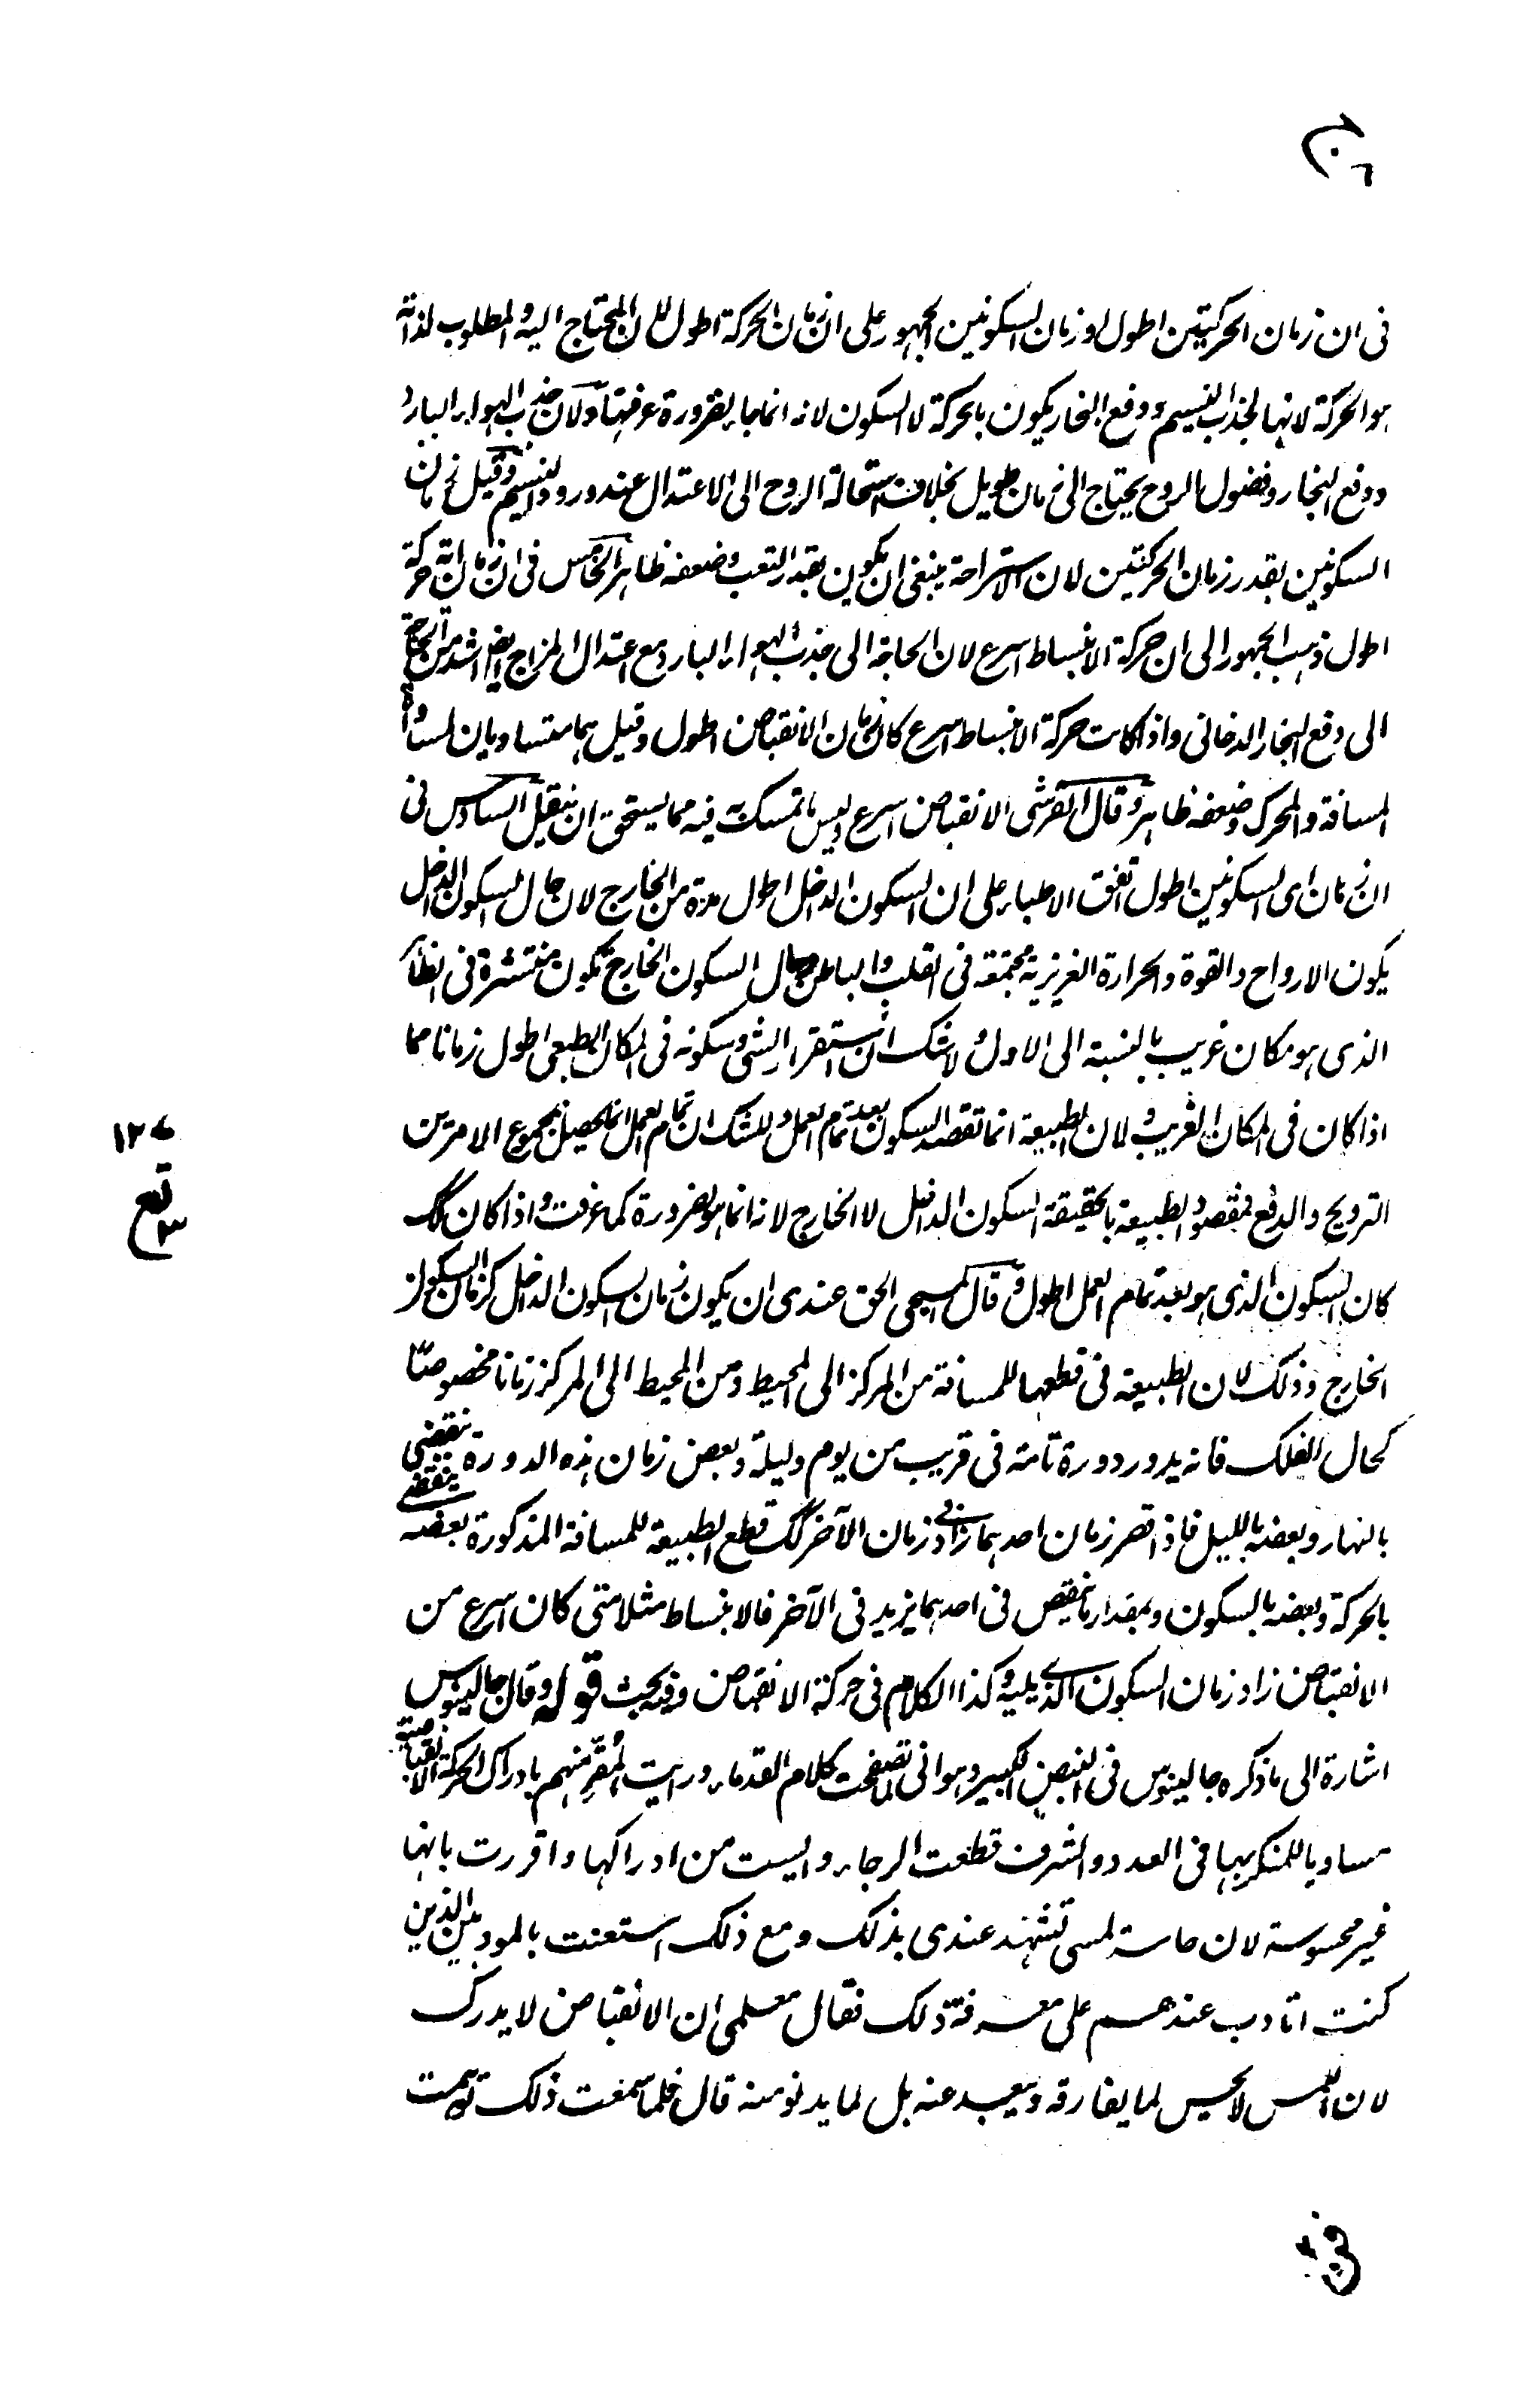 فى ان زمان الحركتين اطول او زمان السكونين الجمهور على ان زمان الحركة اطول لان المحتاج اليه والمطلوب لذاته
هو الحركة لانها لجذب النسيم ودفع البخار يكون بالحركة لا السكون لانه انما جاء لضرورة عرفتها ولان جذب الهواء البارد
ودفع البخار وفضول الروح يحتاج الى زمان طويل بخلاف استحالة الروح الى الاعتدال عند ورود النسيم وقيل زمان
السكونين بقدر زمان الحركتين لان الاستراحة ينبغى ان يكون بقدر التعب وضعفه ظاهر الخامس فى ان زمان اية حركة
اطول ذهب الجمهور الى ان حركة الانبساط اسرع لان الحاجة الى جذب الهواء البارد مع اعتدال المزاج ايضا اشد من الحاجة
الى دفع البخار الدخانى واذا كانت حركة الانبساط اسرع كان زمان الانقباض اطول وقيل هما متساويان لمساواة
المسافة والمحرك وضعفه ظاهر وقال القرشى الانقباض اسرع وليس ما تمسك به فيه مما يستحق ان ينقل السادس فى
ان زمان اى السكونين اطول اتفق الاطباء على ان السكون الداخل اطول مدة من الخارج لان حال السكون الداخل
يكون الارواح والقوة والحرارة الغريزية مجتمعة فى القلب والباطن وحال السكون الخارج تكون منتشرة فى الظاهر
الذى هو مكان غريب بالنسبة الى الاول ولا شك ان استقرار الشى وسكونه فى المكان الطبعى اطول زمانا مما
اذا كان فى المكان الغريب ولان الطبيعة انما تقصد السكون بعد تمام العمل ولا شك ان تمام العمل انما يحصل بمجموع الامرين
الترويح والدفع فمقصود الطبيعة بالحقيقة السكون الداخل لا الخارج لانه انما هو لضرورة كما عرفت واذا كان كك
كان السكون الذى هو بعد تمام العمل اطول وقال المسيحى الحق عندى ان يكون زمان السكون الداخل كزمان السكون
الخارج وذلك لان الطبيعة فى قطعها للمسافة من المركز الى المحيط ومن المحيط الى المركز زمانا مخصوصا
كحال الفلك فانه يدور دورة تامة فى قريب من يوم وليلة وبعض زمان هذه الدورة ينقضى
بالنهار وبعضه بالليل فاذا قصر زمان احدهما زاد فى زمان الآخر كك قطع الطبيعة للمسافة المذكورة بعضه ينقضى
بالحركة وبعضه بالسكون وبمقدار ما ينقص فى احدهما يزيد فى الآخر فالانبساط مثلا متى كان اسرع من
الانقباض زاد زمان السكون الذى يليه وكذا الكلام فى حركة الانقباض وفيه بحث قوله وقال جالينوس
اشارة الى ما ذكره جالينوس فى النبض الكبير وهو انى لما تصفحت كلام القدماء ورايت المقر منهم بادراك الحركة الانقباضية
مساويا للمنكر بها فى العدد والشرف قطعت الرجاء وايست من ادراكها واقررت بانها
غير محسوسة لان حاسة لمسى تشهد عندى بذلك ومع ذلك استعنت بالمودبين الذين
كنت اتادب عندهم على معرفة ذلك فقال معلمى ان الانقباض لا يدرك
لان اللمس لا يحس لما يفارقه ويبعد عنه بل لما يدنو منه قال فلما سمعت ذلك توهمت